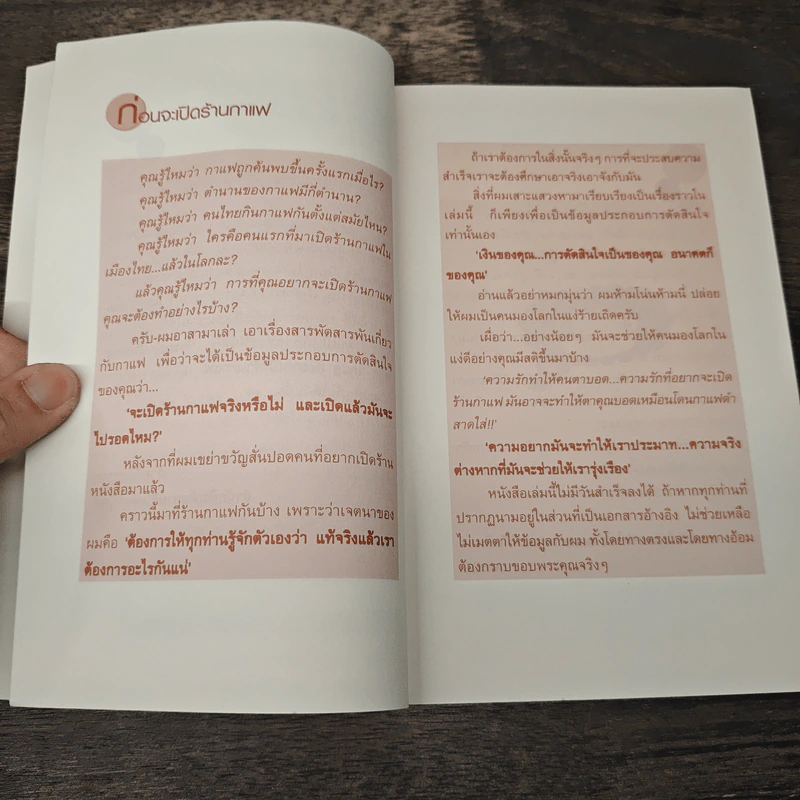 ก่อนจะเปิดร้านกาแฟ
คุณรู้ไหมว่า กาแฟถูกค้นพบขึ้นครั้งแรกเมื่อไร?
คุณรู้ไหมว่า ตำนานของกาแฟมีกี่ตำนาน?
คุณรู้ไหมว่า คนไทยกินกาแฟกันตั้งแต่สมัยไหน?
คุณรู้ไหมว่า ใครคือคนแรกที่มาเปิดร้านกาแฟใน
เมืองไทย...แล้วในโลกละ?
แล้วคุณรู้ไหมว่า การที่คุณอยากจะเปิดร้านกาแฟ
คุณจะต้องทำอย่างไรบ้าง?
ครับ-ผมอาสามาเล่า เอาเรื่องสารพัดสารพันเกี่ยว
กับกาแฟ เพื่อว่าจะได้เป็นข้อมูลประกอบการตัดสินใจ
ของคุณว่า...
'จะเปิดร้านกาแฟจริงหรือไม่ และเปิดแล้วมันจะ
ไปรอดไหม?'
หลังจากที่ผมเขย่าขวัญสั่นปอดคนที่อยากเปิดร้าน
หนังสือมาแล้ว
คราวนี้มาที่ร้านกาแฟกันบ้าง เพราะว่าเจตนาของ
ผมคือ 'ต้องการให้ทุกท่านรู้จักตัวเองว่า แท้จริงแล้วเรา
ต้องการอะไรกันแน่'
ถ้าเราต้องการในสิ่งนั้นจริงๆ การที่จะประสบความ
สำเร็จเราจะต้องศึกษาเอาจริงเอาจังกับมัน
สิ่งที่ผมเสาะแสวงหามาเรียบเรียงเป็นเรื่องราวใน
เล่มนี้ ก็เพียงเพื่อเป็นข้อมูลประกอบการตัดสินใจ
เท่านั้นเอง
'เงินของคุณ...การตัดสินใจเป็นของคุณ อนาคตก็
ของคุณ'
อ่านแล้วอย่าหมกมุ่นว่า ผมห้ามโน่นห้ามนี่ ปล่อย
ให้ผมเป็นคนมองโลกในแง่ร้ายเถิดครับ
เผื่อว่า...อย่างน้อยๆ มันจะช่วยให้คนมองโลกใน
แง่ดีอย่างคุณมีสติขึ้นมาบ้าง
'ความรักทำให้คนตาบอด...ความรักที่อยากจะเปิด
ร้านกาแฟ มันอาจจะทำให้ตาคุณบอดเหมือนโดนกาแฟดำ
สาดใส่!!'
'ความอยากมันจะทำให้เราประมาท...ความจริง
ต่างหากที่มันจะช่วยให้เรารุ่งเรือง'
หนังสือเล่มนี้ไม่มีวันสำเร็จลงได้ ถ้าหากทุกท่านที่
ปรากฏนามอยู่ในส่วนที่เป็นเอกสารอ้างอิง ไม่ช่วยเหลือ
ไม่เมตตาให้ข้อมูลกับผม ทั้งโดยทางตรงและโดยทางอ้อม
ต้องกราบขอบพระคุณจริงๆ